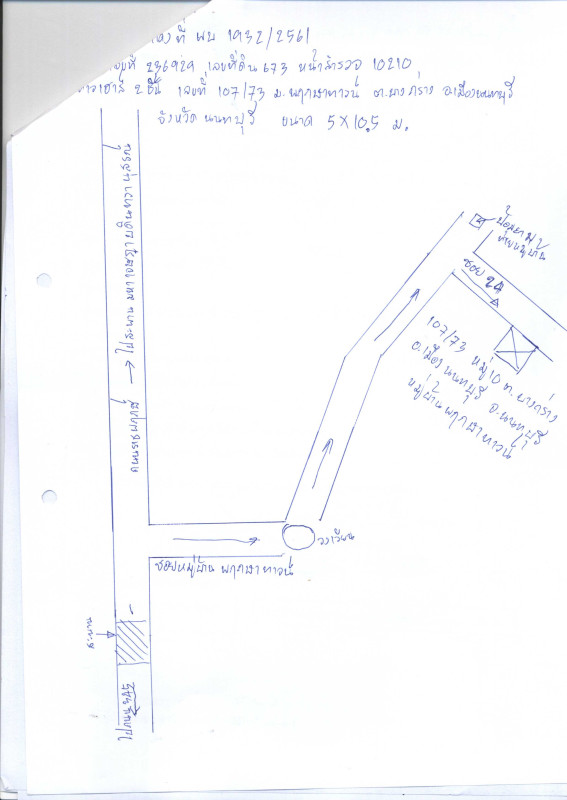 ที่ ผบ 1932/2561
เลขที่ 236929 เลขที่ดิน 673 หน้าสำรวจ 10210
2 ชั้น เลขที่ 107/73 ม.พฤกษาทาวน์ ต.บางกร่าง อ.เมืองนนทบุรี
จังหวัดนนทบุรี ขนาด 5 X 10.5 ม.
ไปสะพาน มหาเจษฎาบดินทรานุสรณ์
ถนนราชพฤกษ์
ป้อมยาม
ซอย 2A
107/73 หมู่ 10 ต.บางกร่าง
อ.เมืองนนทบุรี จ.นนทบุรี
หมู่บ้านพฤกษาทาวน์
วงเวียน
ซอยหมู่บ้าน พฤกษาทาวน์
สะพาน
ไปถนน 345